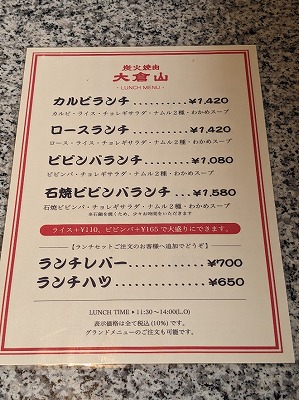 炭火焼肉
大倉山
- LUNCH MENU -
カルビランチ..........¥1,420
カルビ・ライス・チョレギサラダ・ナムル2種・わかめスープ
ロースランチ..........¥1,420
ロース・ライス・チョレギサラダ・ナムル2種・わかめスープ
ビビンバランチ.......¥1,080
ビビンバ・チョレギサラダ・ナムル2種・わかめスープ
石焼ビビンバランチ...¥1,580
石焼ビビンバ・チョレギサラダ・ナムル2種・わかめスープ
※石鍋を焼くため、少々お時間をいただきます
ライス+¥110、ビビンバ+¥165で大盛りにできます。
【ランチセットご注文のお客様へ追加でどうぞ】
ランチレバー..............¥700
ランチハツ................¥650
LUNCH TIME・11:30〜14:00(L.O)
表示価格は全て税込(10%)です。
グランドメニューのご注文も可能です。